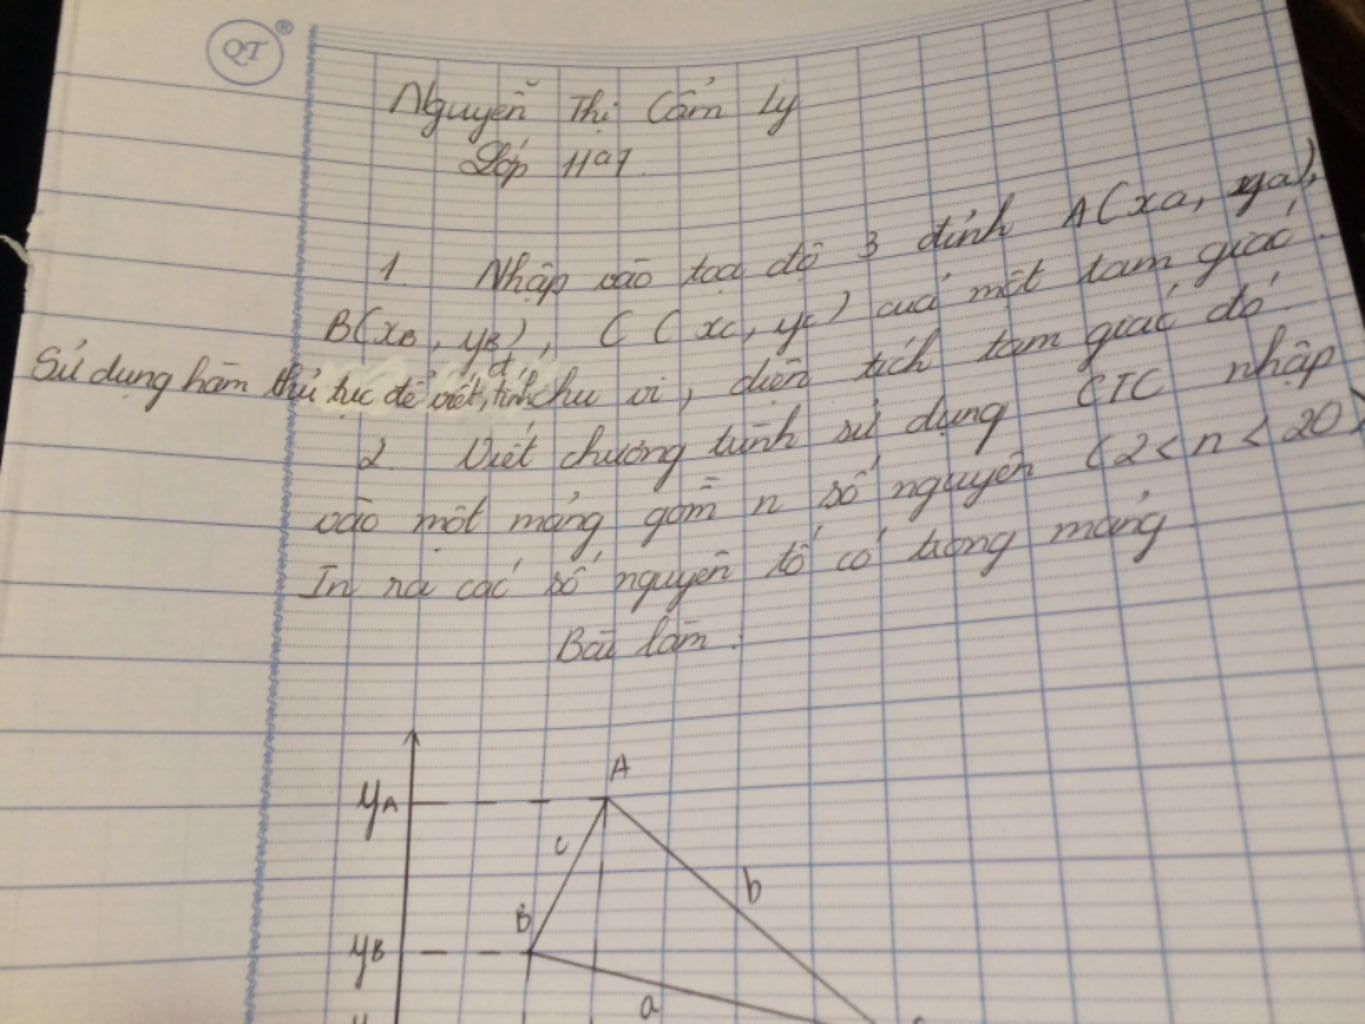 QT ®
Nguyễn Thị Cẩm Ly
Lớp 11a1
1. Nhập vào tọa độ 3 đỉnh A(xa, ya),
B(xB, yB), C(xc, yc) của một tam giác.
Sử dụng hàm thủ tục để viết, tính chu vi, diện tích tam giác đó.
2. Viết chương trình sử dụng CTC nhập
vào một mảng gồm n số nguyên (2<n<20)
In ra các số nguyên tố có trong mảng
Bài làm:
A
yA
c
b
B
yB
a